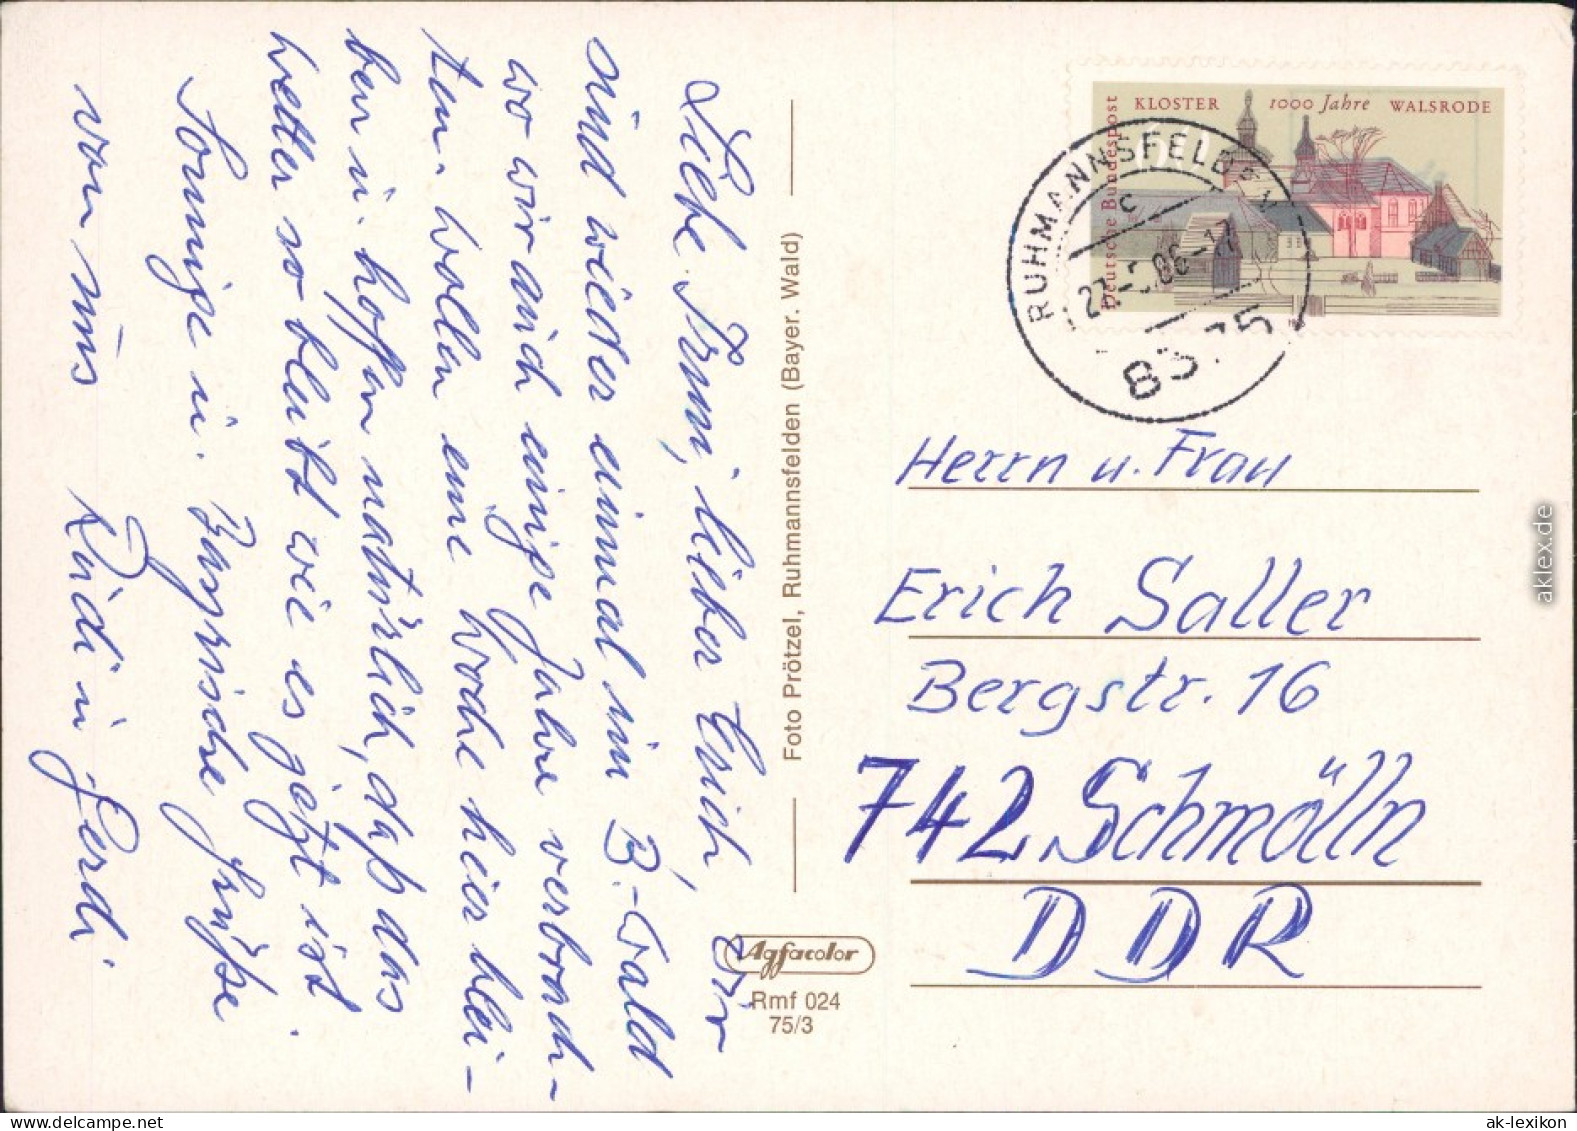 Liebe Irmi, lieber Erich, wir
sind wieder einmal im B.-Wald
wo wir auch einige Jahre verbrach-
ten. Wollen eine Woche hier blei-
ben u. hoffen natürlich, daß das
Wetter so bleibt wie es jetzt ist.
Sonnige u. Bayrische Grüße
von uns Rudi u. Gerdi.
Foto Prötzel, Ruhmannsfelden (Bayer. Wald)
Agfacolor
Rmf 024
75/3
KLOSTER 1000 Jahre WALSRODE
Deutsche Bundespost
RUHMANNSFELDEN
c
86-17
Herrn u. Frau
Erich Saller
Bergstr. 16
742 Schmölln
DDR
aklex.de
ak-lexikon